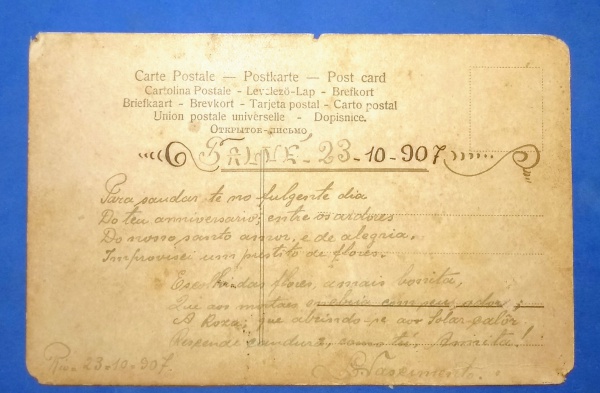 Carte Postale — Postkarte — Post card
Cartolina Postale - Levelező-Lap - Brefkort
Briefkaart - Brevkort - Tarjeta postal - Carto postal
Union postale universelle - Dopisnice.
Открытое-письмо
SALVÉ - 23-10-907
Para saudar-te no fulgente dia
Do teu anniversario; entre os ardores
Do nosso santo amor, e de alegria,
Improvisei um prestito de flores.
Escolhi das flores, a mais bonita,
Que aos mortaes inebria com seu odor;
A Roza, que abrindo-se aos Solar calôr
Rescende candura, como tú, Annita!
Rio- 23-10-907.
Nascimento.